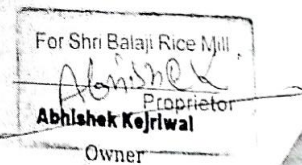 For Shri Balaji Rice Mill
Abhishek
Proprietor
Abhishek Kejriwal
Owner